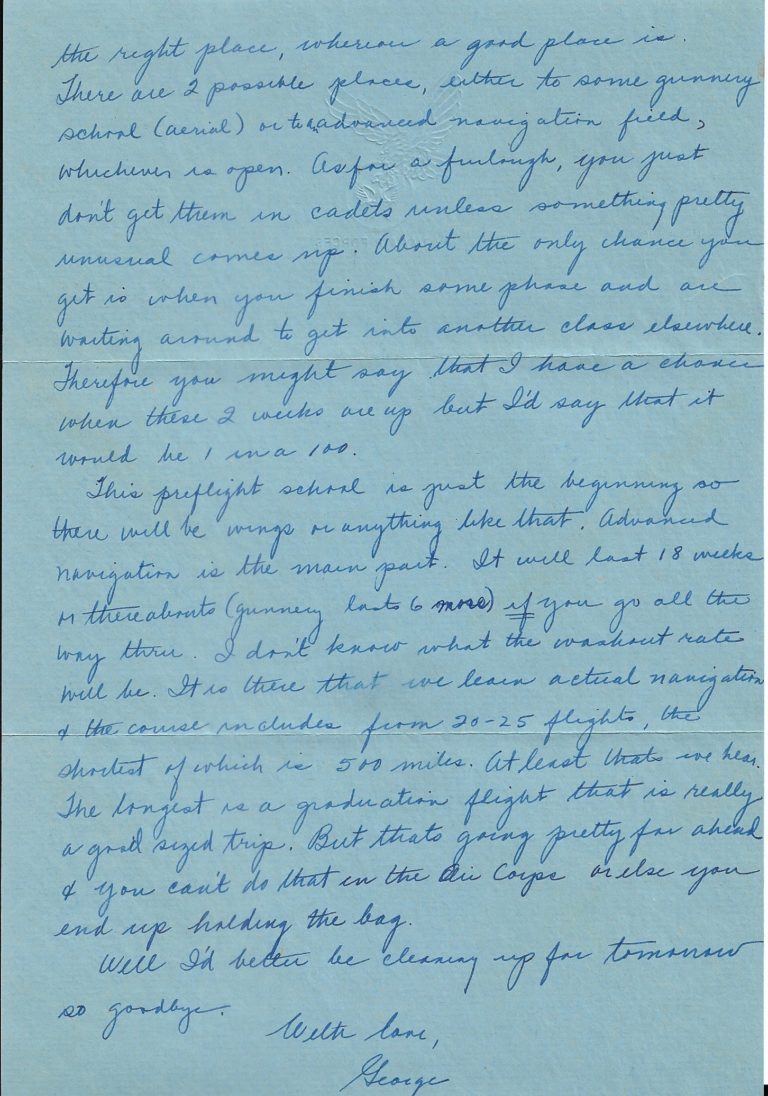 the right place, wherever a good place is.
There are 2 possible places, either to some gunnery
school (aerial) or to advanced navigation field,
whichever is open. As for a furlough, you just
don't get them in cadets unless something pretty
unusual comes up. About the only chance you
get is when you finish some phase and are
waiting around to get into another class elsewhere.
Therefore you might say that I have a chance
when these 2 weeks are up but I'd say that it
would be 1 in a 100.
This preflight school is just the beginning so
there will be wings or anything like that. Advanced
navigation is the main part. It will last 18 weeks
or thereabouts (gunnery lasts 6 more) if you go all the
way thru. I don't know what the washout rate
will be. It is there that we learn actual navigation
& the course includes from 20-25 flights, the
shortest of which is 500 miles. At least thats we hear.
The longest is a graduation flight that is really
a good sized trip. But thats going pretty far ahead
& you can't do that in the Air Corps or else you
end up holding the bag.
Well I'd better be cleaning up for tomorrow
so goodbye.
With love,
George